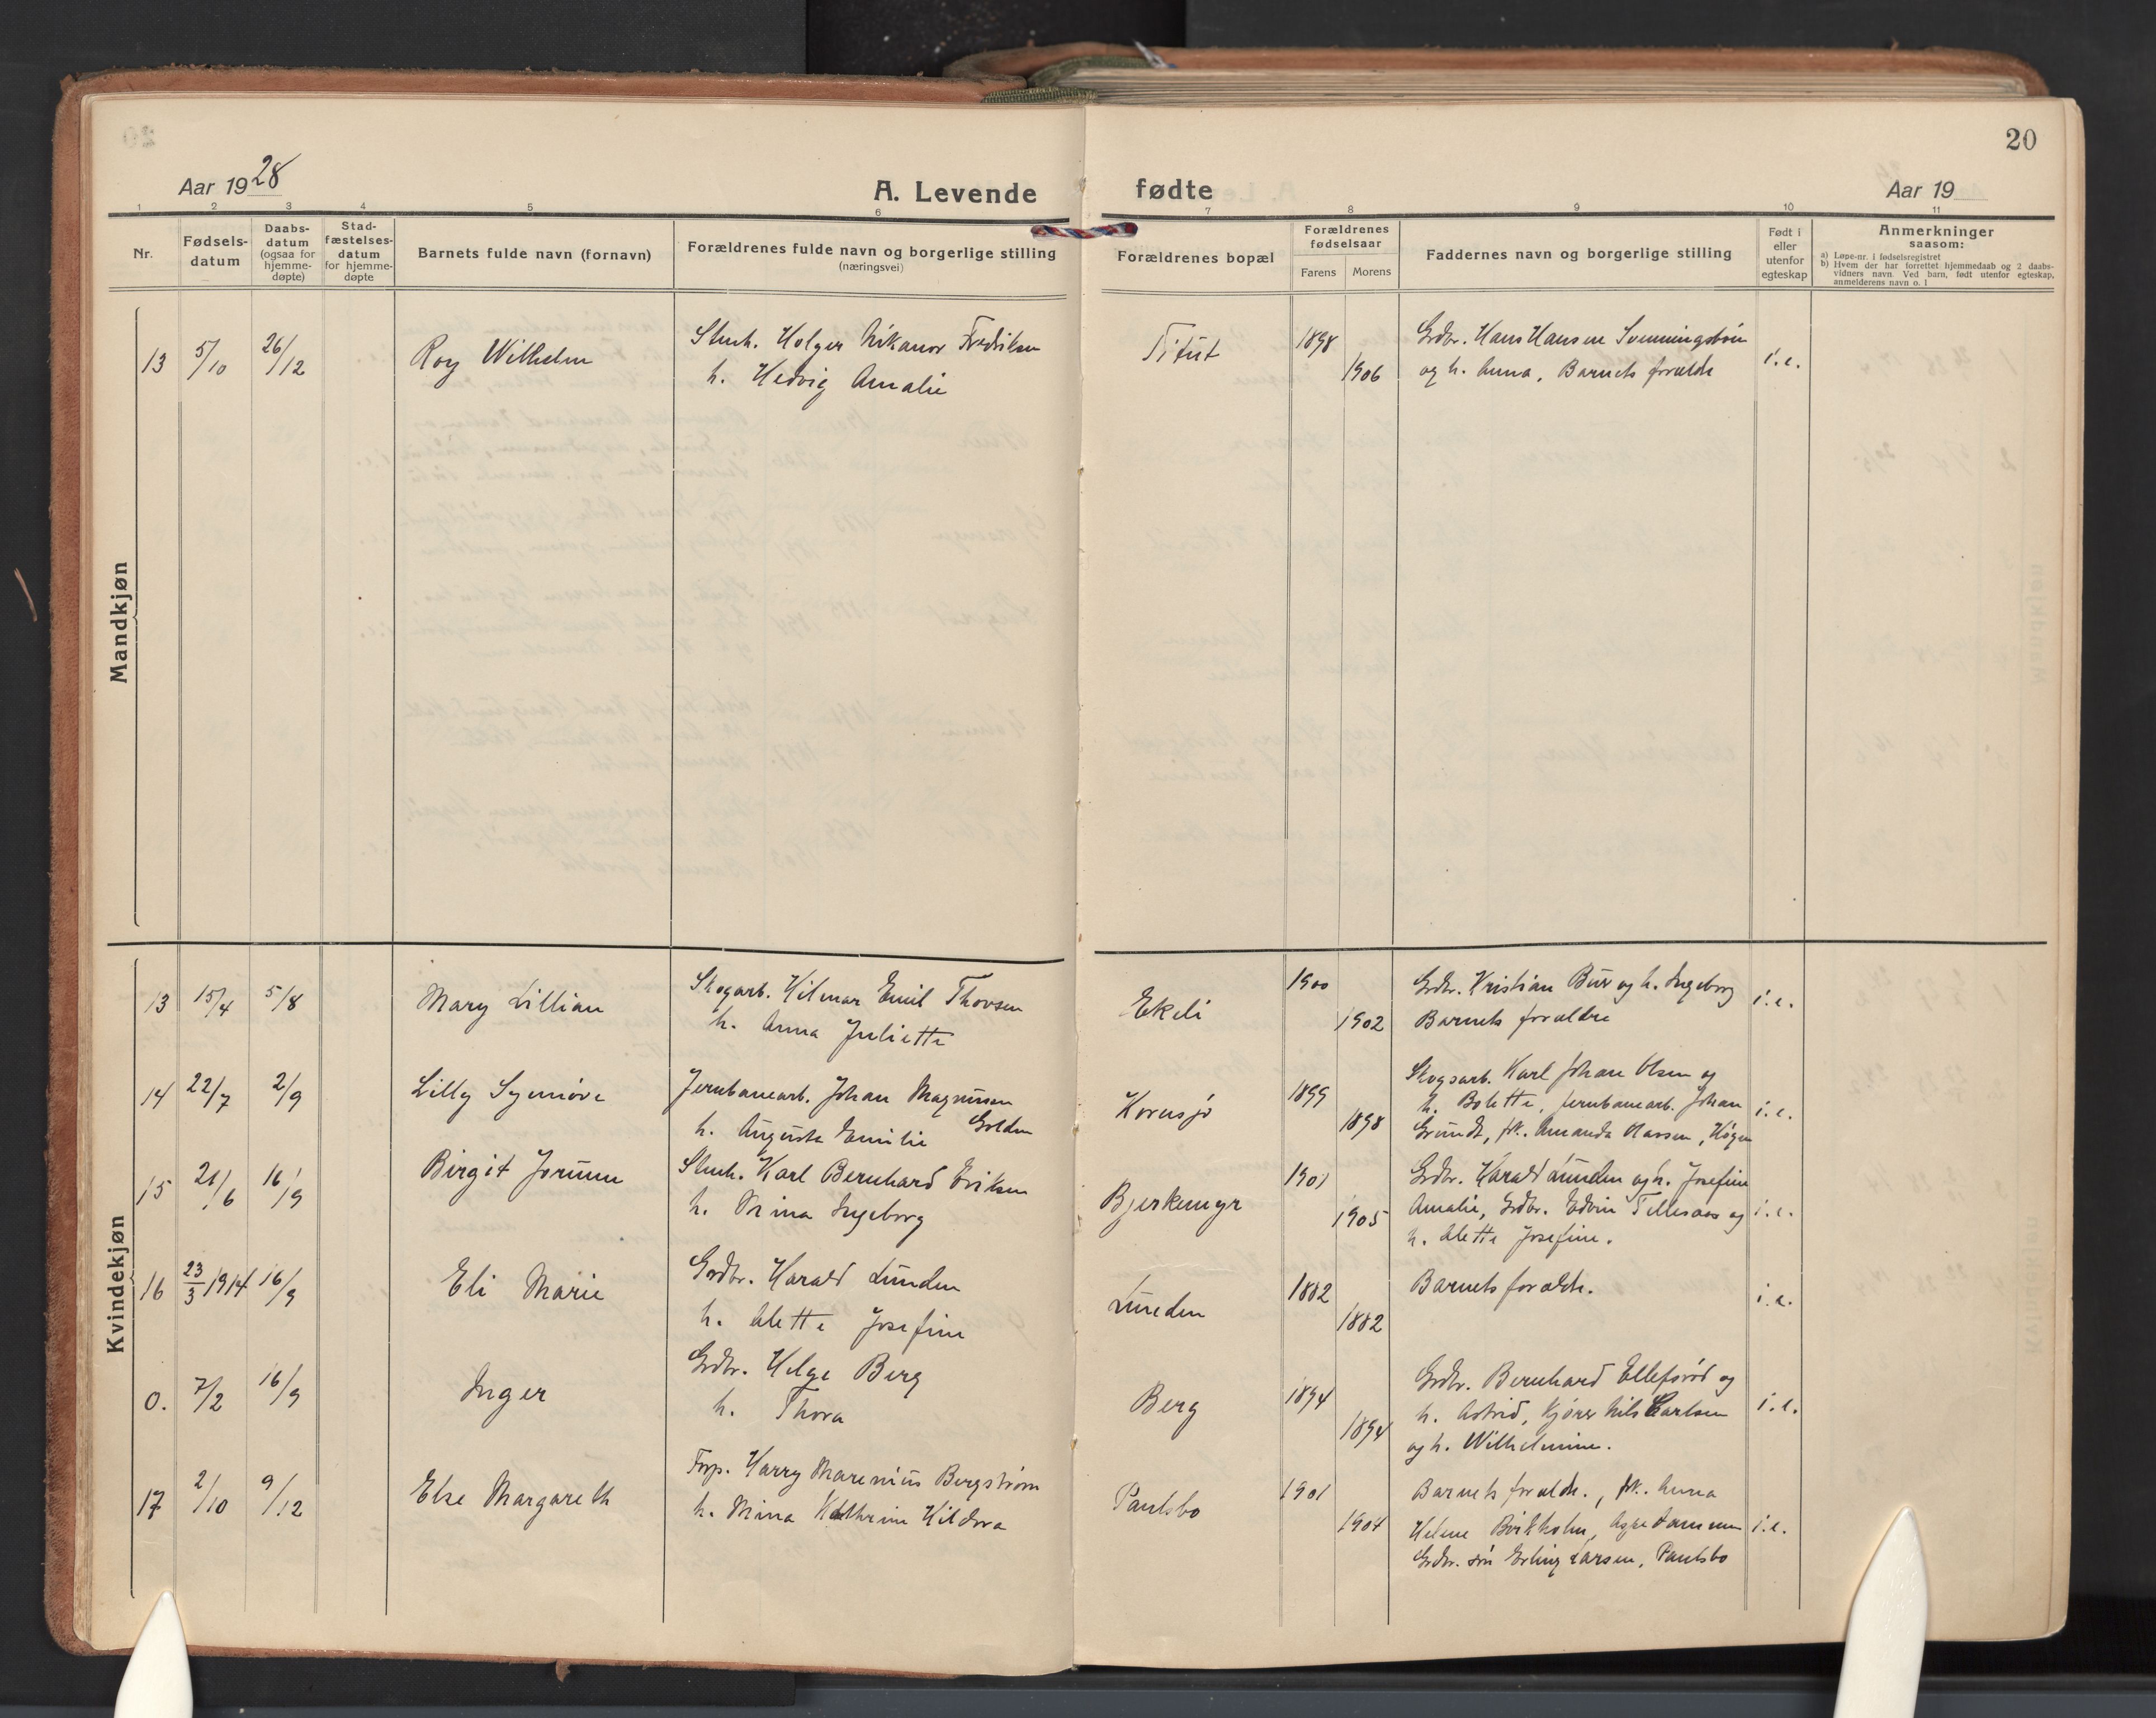 20
Aar 1928
A. Levende fødte
Aar 19
1 2 3 4 5 6 7 8 9 10 11
Nr.
Fødsels-
datum
Daabs-
datum
(ogsaa for
hjemme-
døpte)
Stad-
fæstelses-
datum
for hjemme-
døpte
Barnets fulde navn (fornavn)
Forældrenes fulde navn og borgerlige stilling
(næringsvei)
Forældrenes bopæl
Forældrenes
fødselsaar
Farens Morens
Faddernes navn og borgerlige stilling
Født i
eller
utenfor
egteskap
Anmerkninger
saasom:
a) Løpe-nr. i fødselsregistret
b) Hvem der har forrettet hjemmedaab og 2 daabs-
vidners navn. Ved barn, født utenfor egteskap,
anmelderens navn o. l
Mandkjøn
13 5/10 26/12 Roy Wilhelm
Stenh. Holger Nikanor Fredriksen
h. Hedvig Amalie
Titut
1898
1906
Grdbr. Hans Hansen Svenningsbøn
og h. Anna, Barnets forældr
i.e.
Kvindekjøn
13 15/4 5/8 Mary Lillian
Skogarb. Hilmar Emil Thovsen
h. Anna Juliette
Ekeli
1900
1902
Grdbr. Kristian Bur og h. Ingeborg
Barnets forældre
i.e.
14 22/7 2/9 Lilly Synnøve
Jernbanearb. Johan Magnussen
h. Augusta Emilie Golden
Kornsjø
1899
1898
Skogsarb. Karl Johan Olsen og
h. Bolette, jernbanearb. Johan
Grundt, frk. Amanda
i.e.
15 21/6 16/9 Birgit Jorunn
Stenh. Karl Bernhard Eriksen
h. Ingeborg
Bjerkemyr
1901
1905
Grdbr. Harald Lunden og h. Josefine
Amalie, Grdbr. Edvin og
h. Alette Josefine.
i.e.
16 23/3 1914 16/9 Eli Marie
Grdbr. Harald Lunden
h. Alette Josefine
Lunden
1882
1882
Barnets forældr.
i.e.
0. 7/2 16/9 Inger
Grdbr. Helge Berg
h. Thora
Berg
1894
1894
Grdbr. Bernhard Ellefsrød og
h. Astrid, Kjører Nils Carlsen
og h. Wilhelmine.
i.e.
17 2/10 9/12 Else Margareth
Forp. Harry Marenius Bergstrøm
h. Mina Kathrine Hildora
Paulsbo
1901
1904
Barnets forældr., frk. Anna
Helene Birkholm,
Grdbr. søn Erling Larsen, Paulsbo
i.e.